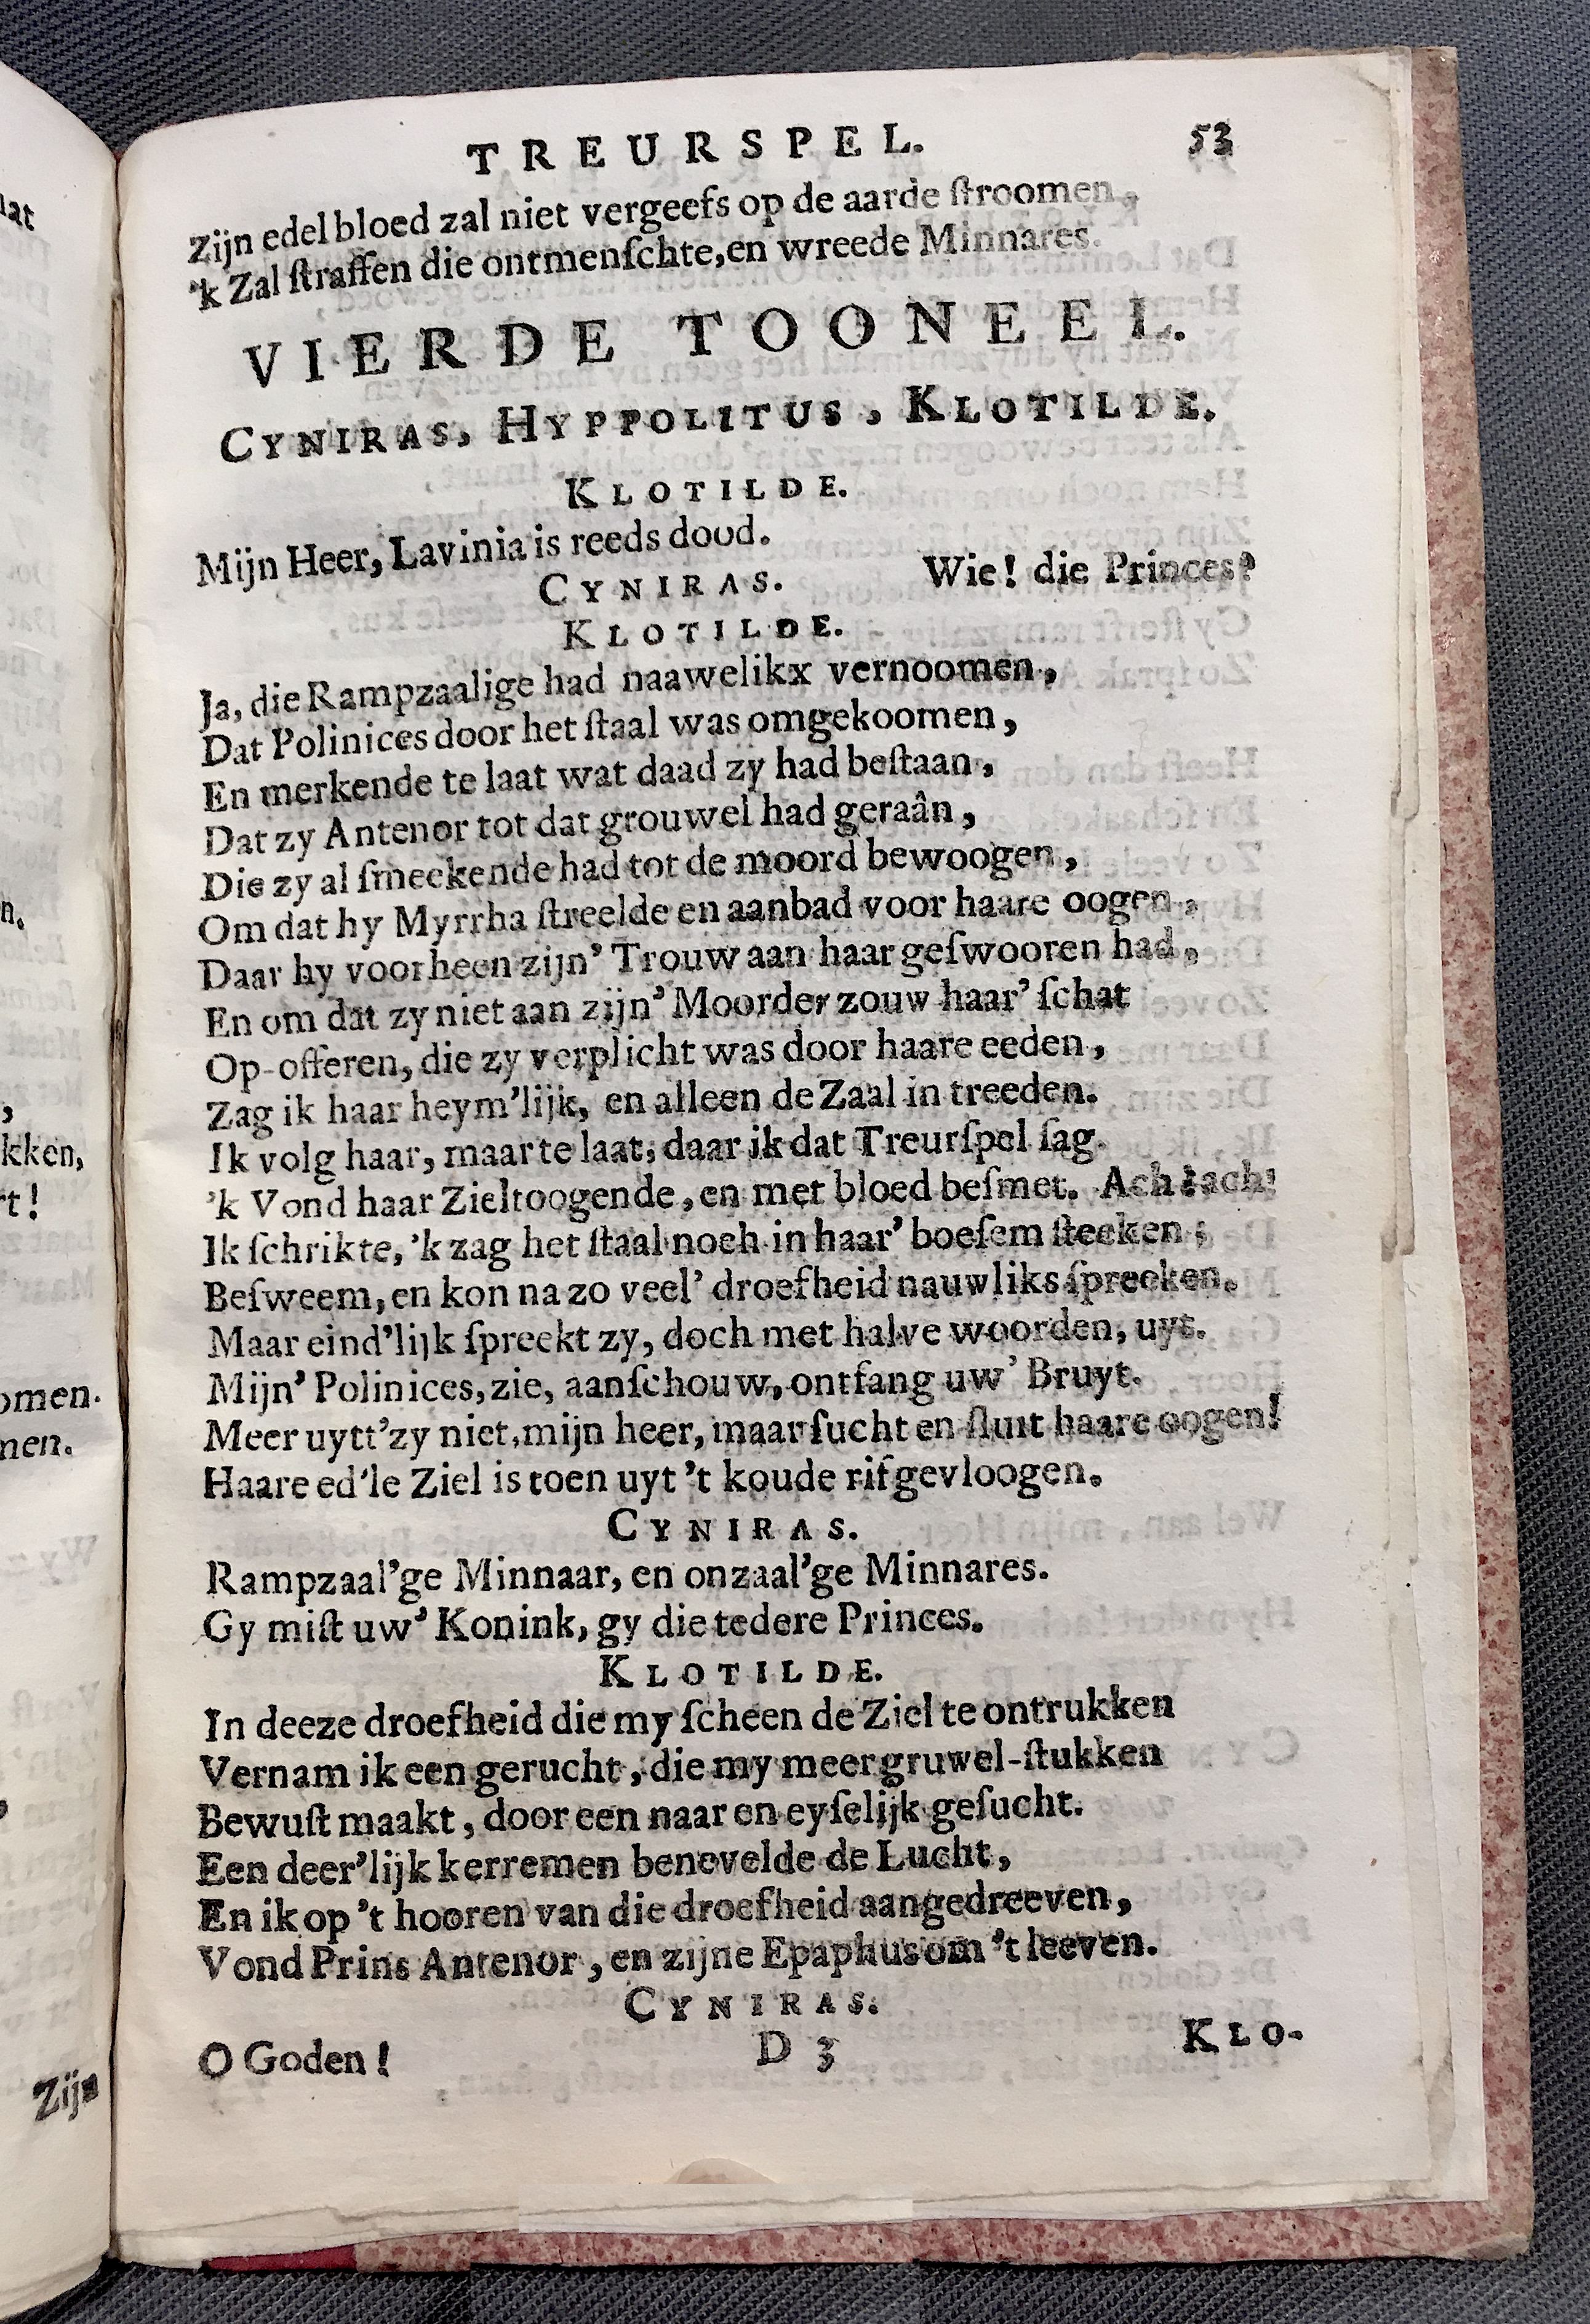 TREURSPEL. 53
Zijn edel bloed zal niet vergeefs op de aarde ſtroomen,
'k Zal ſtraffen die ontmenſchte, en wreede Minnares.
VIERDE TOONEEL.
CYNIRAS, HYPPOLITUS, KLOTILDE.
KLOTILDE.
Mijn Heer, Lavinia is reeds dood.
CYNIRAS. Wie! die Princes?
KLOTILDE.
Ja, die Rampzaalige had naawelikx vernoomen,
Dat Polinices door het ſtaal was omgekoomen,
En merkende te laat wat daad zy had beſtaan,
Dat zy Antenor tot dat grouwel had geraân,
Die zy al ſmeekende had tot de moord bewoogen,
Om dat hy Myrrha ſtreelde en aanbad voor haare oogen,
Daar hy voorheen zijn' Trouw aan haar geſwooren had,
En om dat zy niet aan zijn' Moorder zouw haar' ſchat
Op-offeren, die zy verplicht was door haare eeden,
Zag ik haar heym'lijk, en alleen de Zaal in treeden.
Ik volg haar, maar te laat, daar ik dat Treurſpel ſag.
'k Vond haar Zieltoogende, en met bloed beſmet. Ach! ach!
Ik ſchrikte, 'k zag het ſtaal noch in haar' boeſem ſteeken;
Beſweem, en kon na zo veel' droefheid nauwliks ſpreeken.
Maar eind'lijk ſpreekt zy, doch met halve woorden, uyt.
Mijn' Polinices, zie, aanſchouw, ontfang uw' Bruyt.
Meer uytt'zy niet, mijn heer, maar ſucht en ſluit haare oogen!
Haare ed'le Ziel is toen uyt 't koude rif gevloogen.
CYNIRAS.
Rampzaal'ge Minnaar, en onzaal'ge Minnares.
Gy miſt uw' Konink, gy die tedere Princes.
KLOTILDE.
In deeze droefheid die my ſcheen de Ziel te ontrukken
Vernam ik een gerucht, die my meer gruwel-ſtukken
Bewuſt maakt, door een naar en eyſelijk geſucht.
Een deer'lijk kerremen benevelde de Lucht,
En ik op 't hooren van die droefheid aangedreeven,
Vond Prins Antenor, en zijne Epaphus om 't leeven.
CYNIRAS.
O Goden!
D 3 KLO-
Zijn